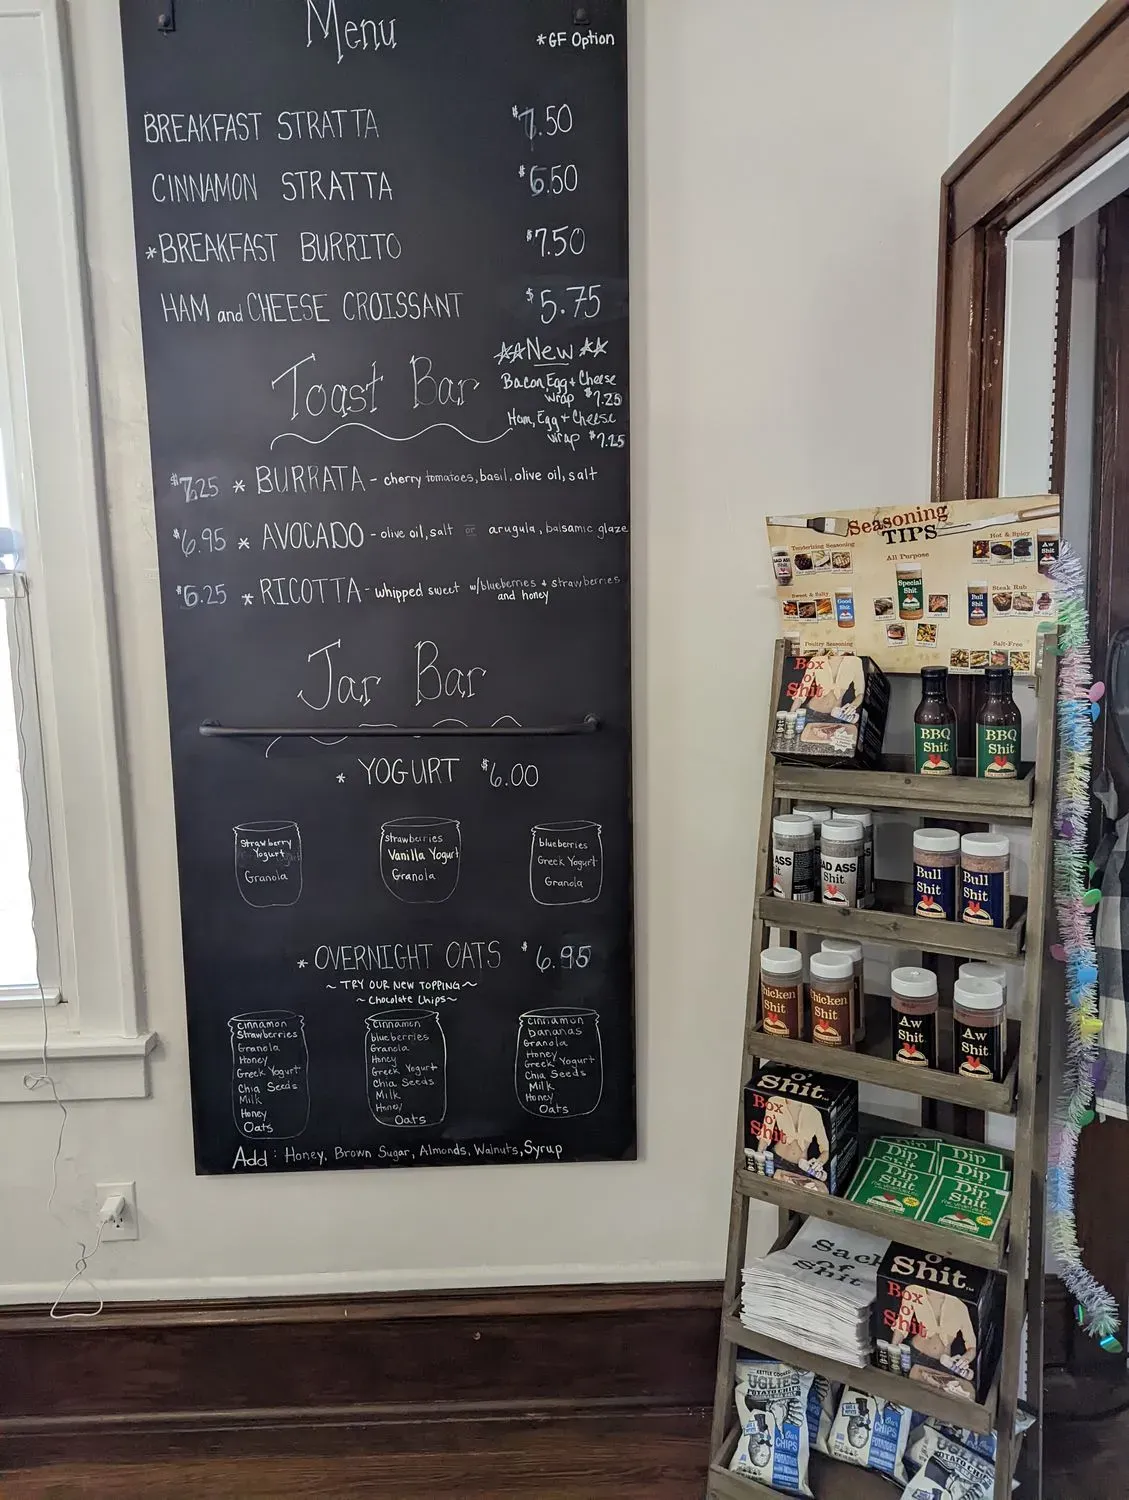 Menu
*GF Option
BREAKFAST STRATTA $7.50
CINNAMON STRATTA $6.50
*BREAKFAST BURRITO $7.50
HAM and CHEESE CROISSANT $5.75
New
Bacon, Egg + Cheese
wrap $7.25
Ham, Egg + Cheese
wrap $7.25
Toast Bar
$7.25 * BURRATA - cherry tomatoes, basil, olive oil, salt
$6.95 * AVOCADO - olive oil, salt or arugula, balsamic glaze
$6.25 * RICOTTA - whipped sweet w/blueberries + strawberries
and honey
Jar Bar
* YOGURT $6.00
Strawberry
Yogurt
Granola
strawberries
Vanilla Yogurt
Granola
blueberries
Greek Yogurt
Granola
* OVERNIGHT OATS $6.95
~ TRY OUR NEW TOPPING ~
~ Chocolate Chips ~
Cinnamon
Strawberries
Granola
Honey
Greek Yogurt
Chia Seeds
Milk
Honey
Oats
Cinnamon
blueberries
Granola
Honey
Greek Yogurt
Chia Seeds
Milk
Honey
Oats
Cinnamon
bananas
Granola
Honey
Greek Yogurt
Chia Seeds
Milk
Oats
Add: Honey, Brown Sugar, Almonds, Walnuts, Syrup
Seasoning
TIPS
Tenderizing Seasoning
Hot & Spicy
All Purpose
Special
Shit
Aw
Shit
Sweet & Salty
Good
Shit
Steak Rub
Bull
Shit
Poultry Seasoning
Salt-Free
Box
o'
Shit
BBQ
Shit
BBQ
Shit
ASS
Shit
BAD ASS
Shit
Bull
Shit
Bull
Shit
Chicken
Shit
Chicken
Shit
Aw
Shit
Aw
Shit
O'
Shit
Box
o'
Shit
Dip
Shit
Dip
Dip
Shit
Dip
Shit
Sack
of
Shit
O'
Shit
Box
o'
Shit
KETTLE COOKED
UGLIES
POTATO CHIPS
Our
CHIPS
Our
CHIPS
UGLIES
POTATO CHIPS